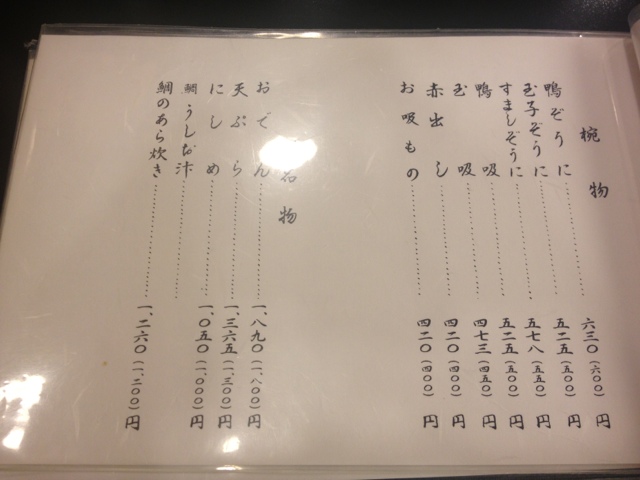 椀物
鴨ぞうに……………六三〇(六〇〇)円
玉子ぞうに……………五二五(五〇〇)円
すましぞうに……………五七八(五五〇)円
鴨吸……………五二五(五〇〇)円
玉吸……………四七三(四五〇)円
赤出し……………四二〇(四〇〇)円
お吸もの……………四二〇(四〇〇)円
名物
おでん……………一、八九〇(一、八〇〇)円
天ぷら……………一、三六五(一、三〇〇)円
にしめ……………一、〇五〇(一、〇〇〇)円
鯛うしお汁……………
鯛のあら炊き……………一、二六〇(一、二〇〇)円